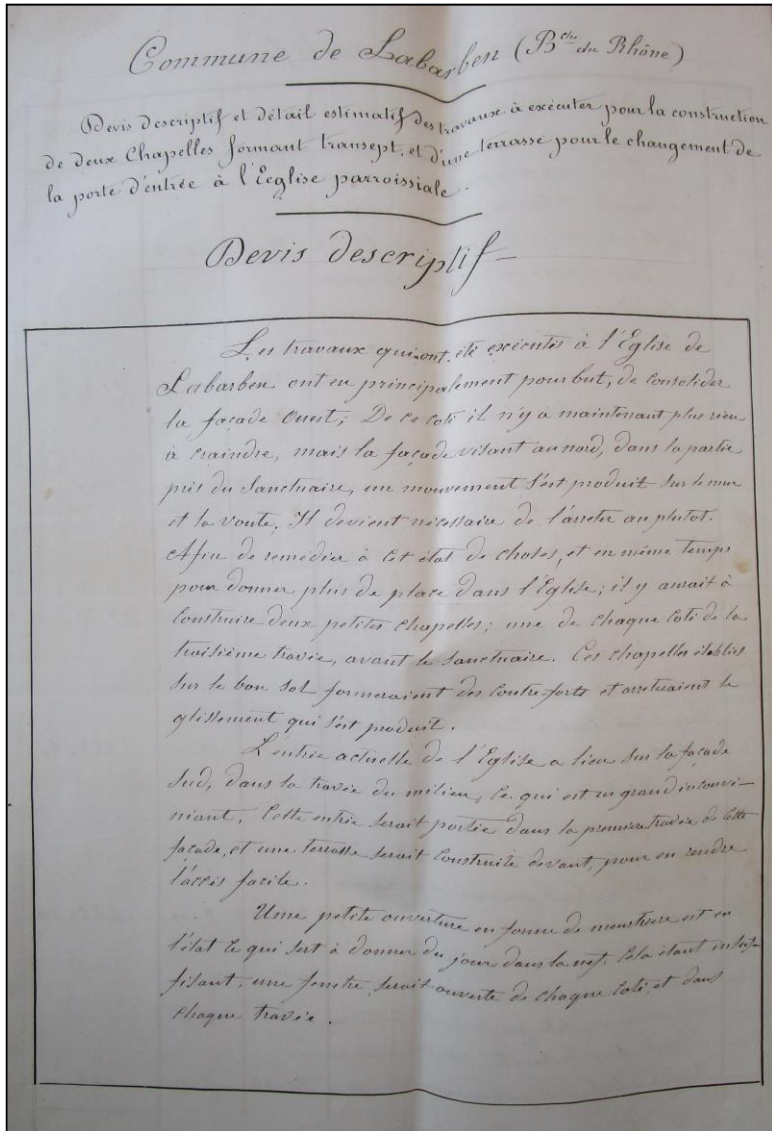 Commune de Labarben (B^ches du Rhône)
Devis descriptif et détail estimatif des travaux à exécuter pour la construction
de deux Chapelles formant transept, et d'une terrasse pour le changement de
la porte d'entrée à l'Eglise parroissiale.
Devis descriptif
Les travaux qui ont été exécutés à l'Eglise de
Labarben ont eu principalement pour but, de consolider
la façade Ouest; De ce coté il n'y a maintenant plus rien
à craindre, mais la façade visant au nord, dans la partie
près du Sanctuaire, un mouvement s'est produit sur le mur
et la voute; Il devient nécessaire de l'arreter au plutot.
Afin de remédier à cet état de choses, et en même temps
pour donner plus de place dans l'Eglise; il y aurait à
construire deux petites chapelles; une de chaque coté de la
troisième travée, avant le sanctuaire. Ces chapelles établies
sur le bon sol formeraient des contre-forts et arreteraient le
glissement qui s'est produit.
L'entrée actuelle de l'Eglise a lieu sur la façade
sud, dans la travée du milieu, ce qui est un grand inconvé-
niant. Cette entrée serait portée dans la première travée de cette
façade, et une terrasse serait construite devant, pour en rendre
l'accès facile.
Une petite ouverture en forme de meurtrière est en
l'état ce qui sert à donner du jour dans la nef. Cela étant insuf-
fisant, une fenetre serait ouverte de chaque coté, et dans
chaque travée.